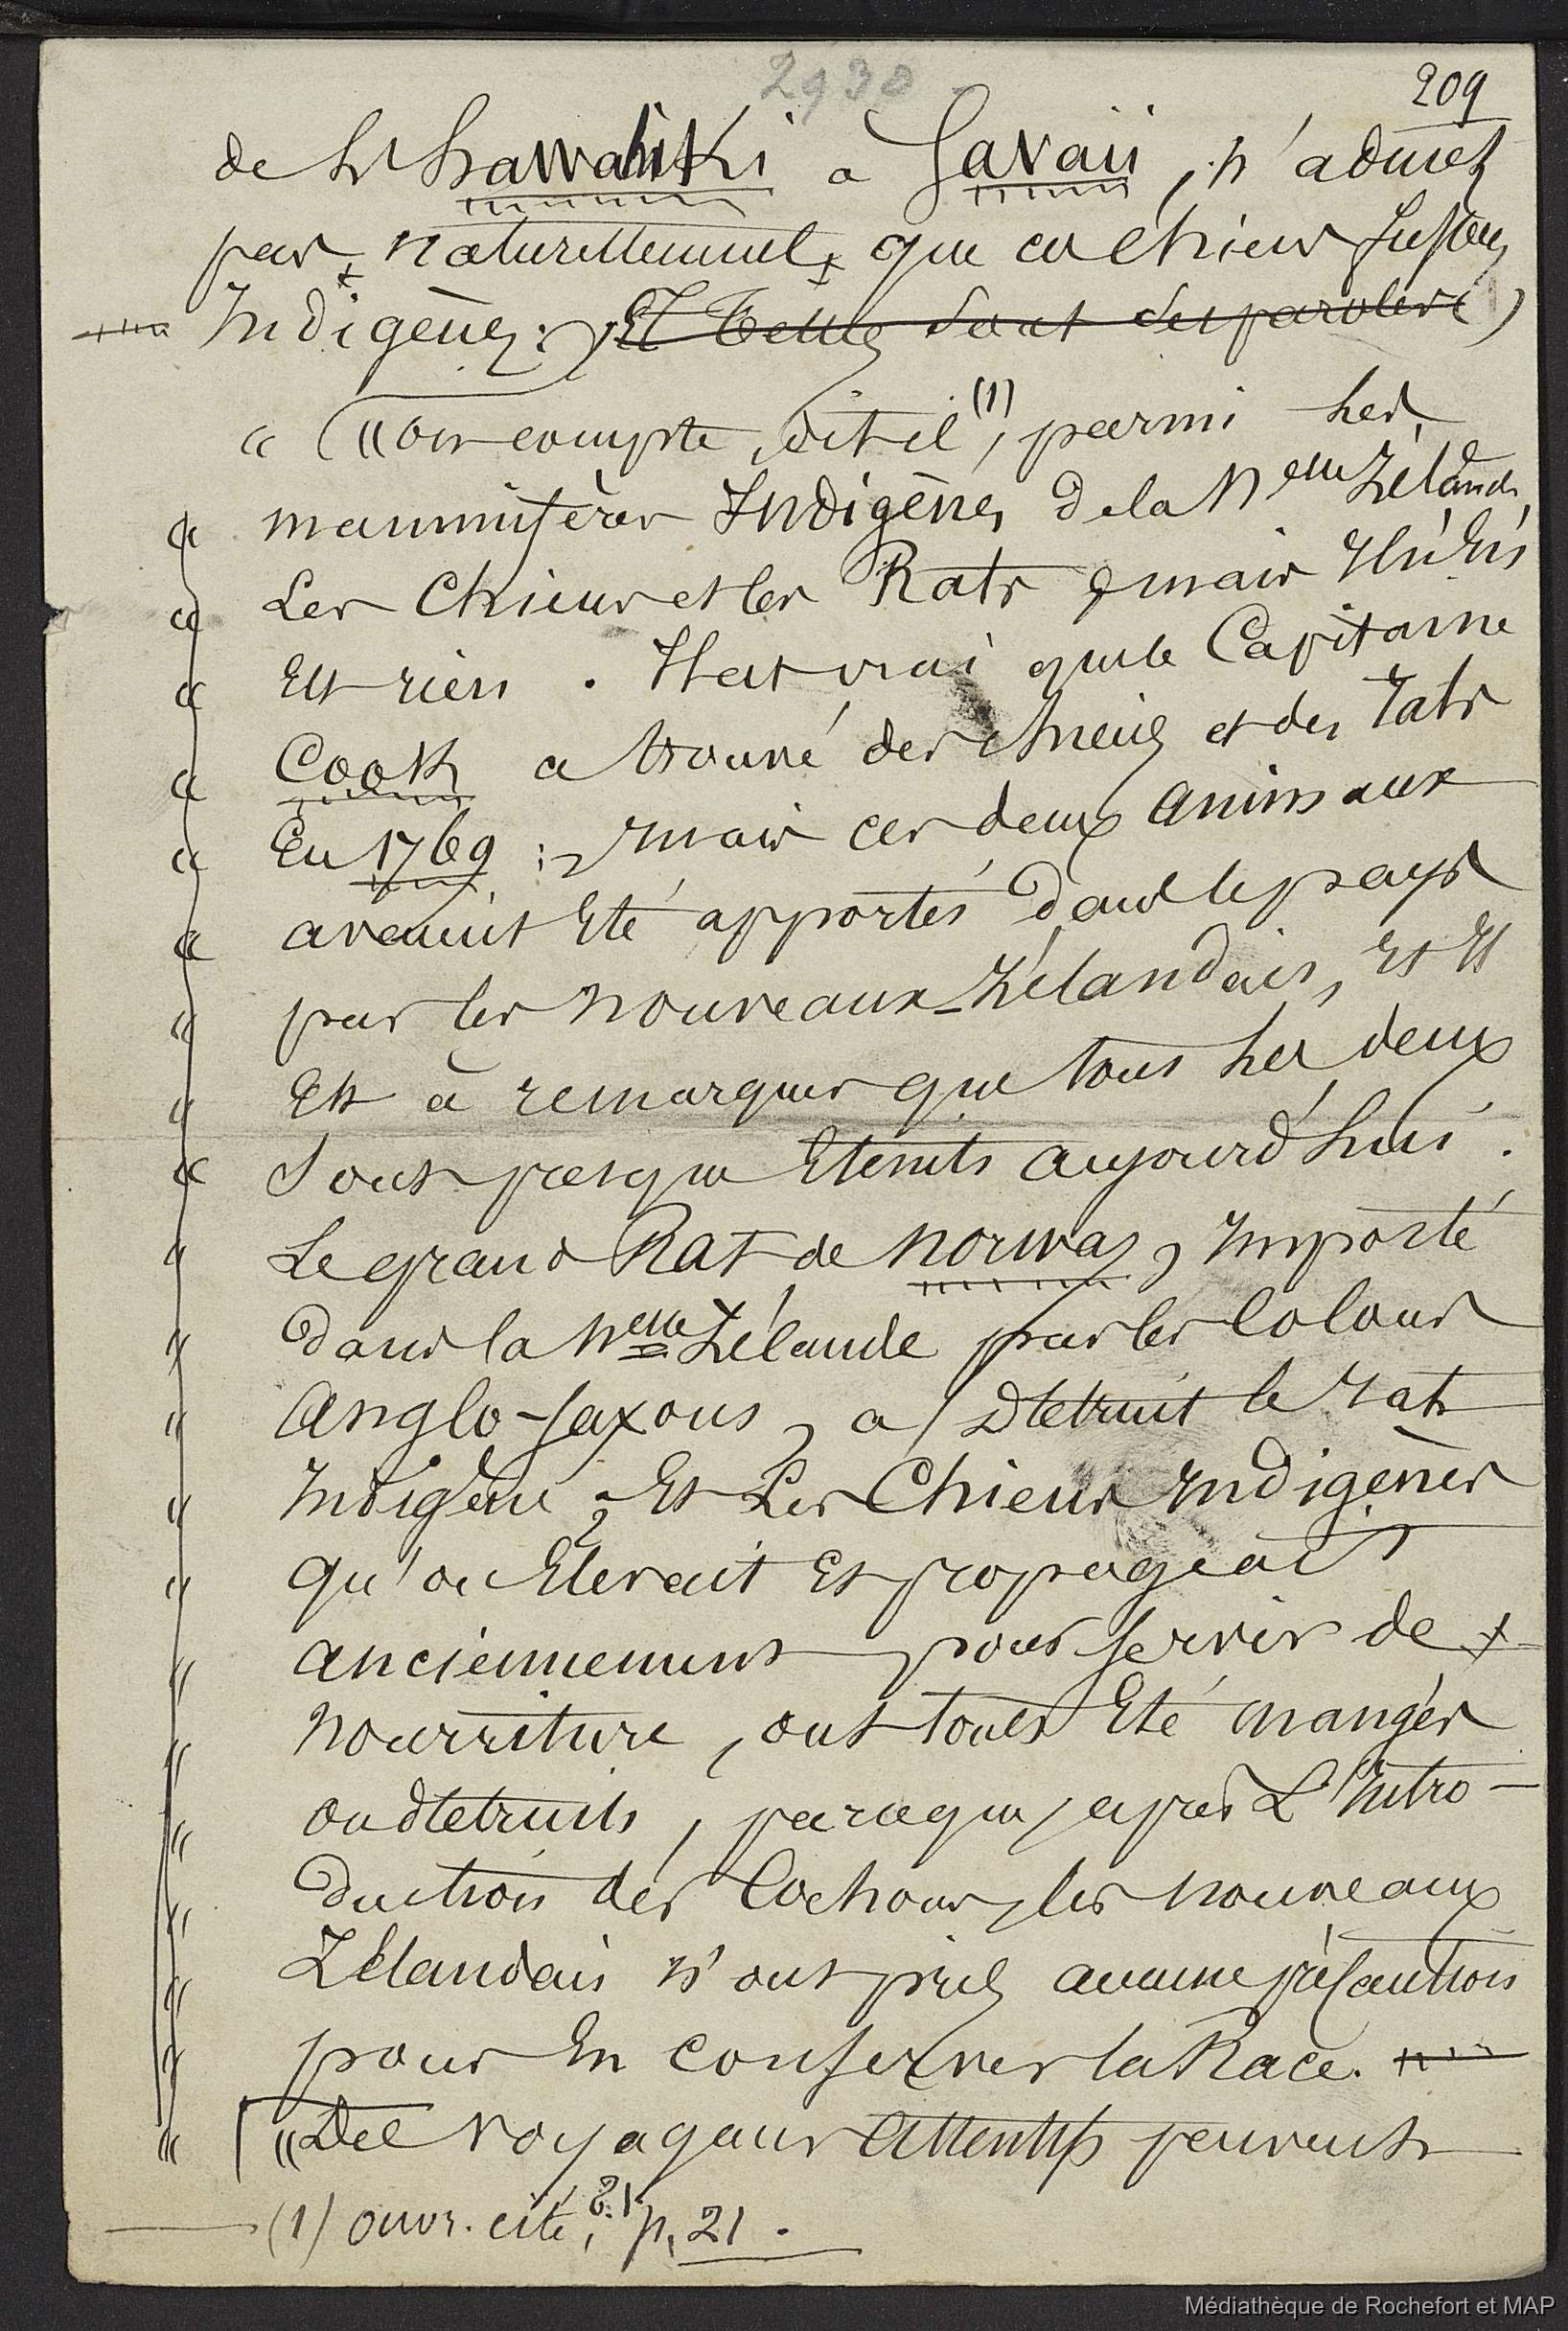 2930
209
de l'Hawahiki à Savaii, n'admet
pas, naturellement, que ces chiens fussent
Indigènes: Et telles sont ses paroles
« « on compte, dit-il (1), parmi les
« mammifères Indigènes de la Nelle Zélande,
« Les Chiens et les Rats, mais Il n'en
« Est rien. Il est vrai que le Capitaine
« Cook a trouvé des chiens et des rats
« En 1769; mais ces deux animaux
« avaient Eté apportés dans le pays
« par les nouveaux-Zélandais, Et Il
« Est à remarquer que tous les deux
« sont presque Eteints aujourd'hui.
« Le grand Rat de Norway, Importé
« dans la Nelle Zélande par les Colons
« Anglo-saxons, a détruit le rat
« Indigène; Et Les Chiens Indigènes
« qu'on Elevait Et propageait
« anciennement pour servir de
« nourriture, ont tous Eté mangés
« ou détruits, parce que, après L'Intro-
« duction des Cochons, les nouveaux
« Zélandais n'ont pris aucune précaution
« pour En conserver la Race.
« « Des voyageurs attentifs peuvent
(1) ouvr. cité, p. 21.
Médiathèque de Rochefort et MAP